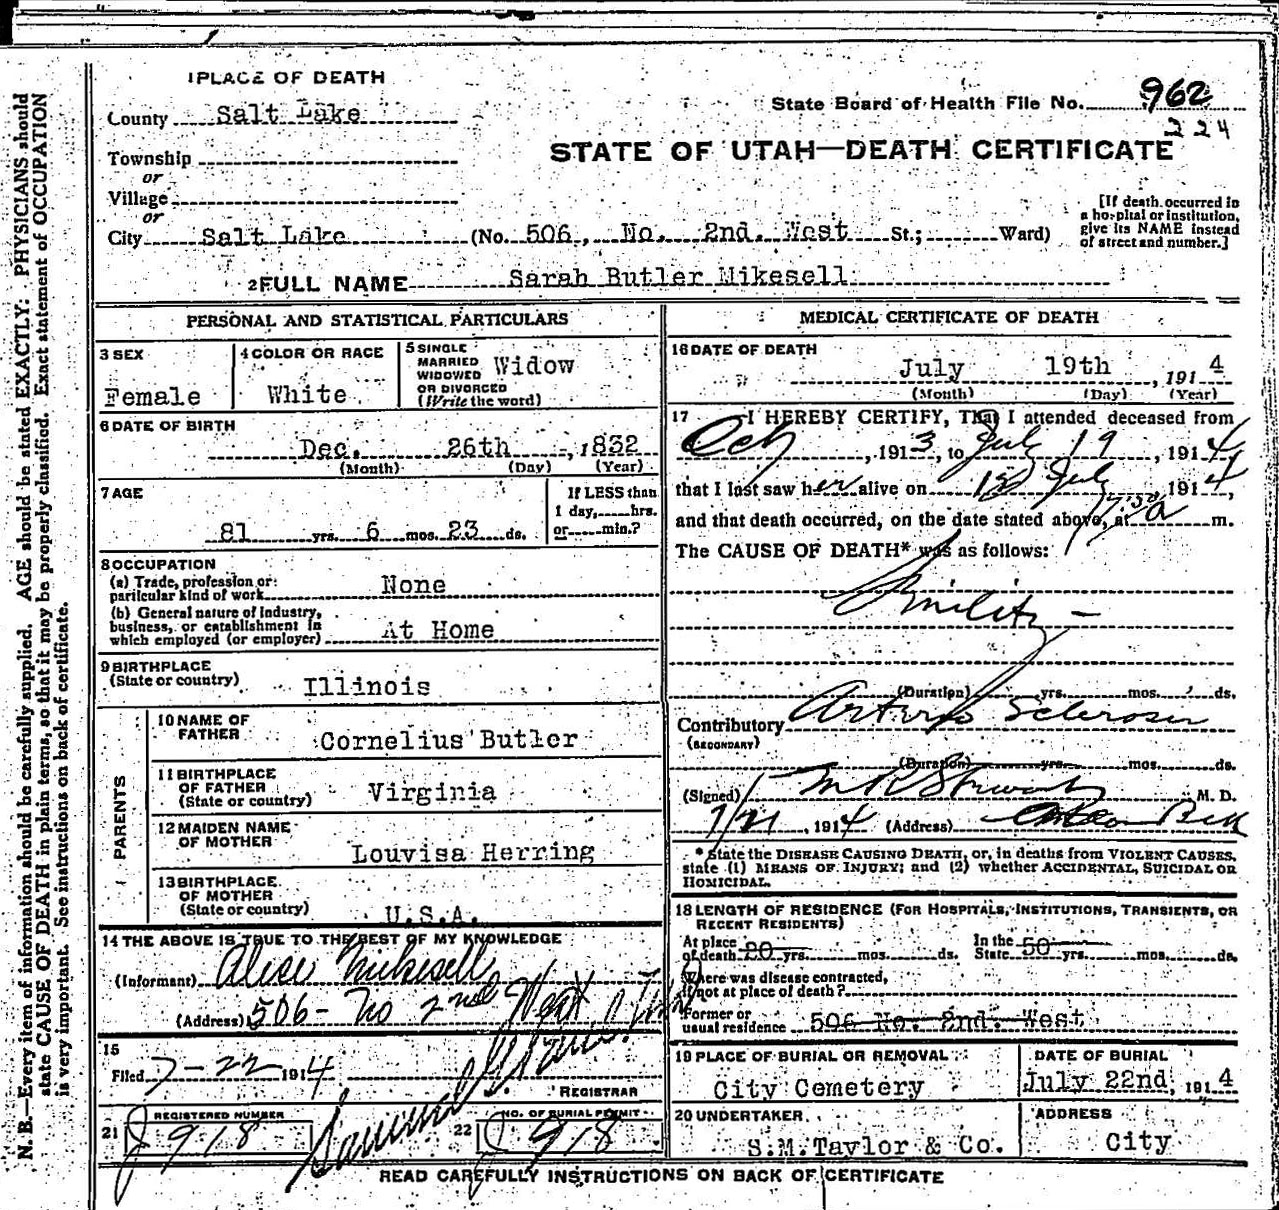 1 PLACE OF DEATH
County Salt Lake
Township
or
Village
or
City Salt Lake (No. 506, No. 2nd. West St.; Ward)
State Board of Health File No. 962
224
STATE OF UTAH—DEATH CERTIFICATE
[If death occurred in
a hospital or institution,
give its NAME instead
of street and number.]
2 FULL NAME Sarah Butler Mikesell
PERSONAL AND STATISTICAL PARTICULARS
3 SEX
Female
4 COLOR OR RACE
White
5 SINGLE
MARRIED
WIDOWED
OR DIVORCED
(Write the word)
Widow
6 DATE OF BIRTH
Dec. 26th , 1832
(Month) (Day) (Year)
7 AGE
81 yrs. 6 mos. 23 ds.
If LESS than
1 day, hrs.
or min.?
8 OCCUPATION
(a) Trade, profession or
particular kind of work None
(b) General nature of industry,
business, or establishment in
which employed (or employer) At Home
9 BIRTHPLACE
(State or country) Illinois
PARENTS
10 NAME OF
FATHER Cornelius Butler
11 BIRTHPLACE
OF FATHER
(State or country) Virginia
12 MAIDEN NAME
OF MOTHER Louvisa Herring
13 BIRTHPLACE
OF MOTHER
(State or country) U.S.A.
14 THE ABOVE IS TRUE TO THE BEST OF MY KNOWLEDGE
(Informant) Alice Mikesell
(Address) 506 - No 2nd West
15
Filed 7-22 1914
REGISTRAR
REGISTERED NUMBER
21 J 918
NO. OF BURIAL PERMIT
22 J 918
MEDICAL CERTIFICATE OF DEATH
16 DATE OF DEATH
July 19th , 1914
(Month) (Day) (Year)
17 I HEREBY CERTIFY, That I attended deceased from
, 1913, to July 19 , 1914,
that I last saw her alive on July 1914,
and that death occurred, on the date stated above, at m.
The CAUSE OF DEATH* was as follows:
Senility -
(Duration) yrs. mos. ds.
Contributory Arterio Sclerosis
(SECONDARY)
(Duration) yrs. mos. ds.
(Signed) M. D.
7/21, 1914 (Address)
* State the DISEASE CAUSING DEATH, or, in deaths from VIOLENT CAUSES,
state (1) MEANS OF INJURY; and (2) whether ACCIDENTAL, SUICIDAL OR
HOMICIDAL.
18 LENGTH OF RESIDENCE (FOR HOSPITALS, INSTITUTIONS, TRANSIENTS, OR
RECENT RESIDENTS)
At place
of death 20 yrs. mos. ds. In the
State 50 yrs. mos. ds.
Where was disease contracted,
if not at place of death?
Former or
usual residence 506 No. 2nd. West
19 PLACE OF BURIAL OR REMOVAL
City Cemetery
DATE OF BURIAL
July 22nd, 1914
20 UNDERTAKER
S.M. Taylor & Co.
ADDRESS
City
READ CAREFULLY INSTRUCTIONS ON BACK OF CERTIFICATE
N. B.—Every item of information should be carefully supplied. AGE should be stated EXACTLY. PHYSICIANS should
state CAUSE OF DEATH in plain terms, so that it may be properly classified. Exact statement of OCCUPATION
is very important. See instructions on back of certificate.